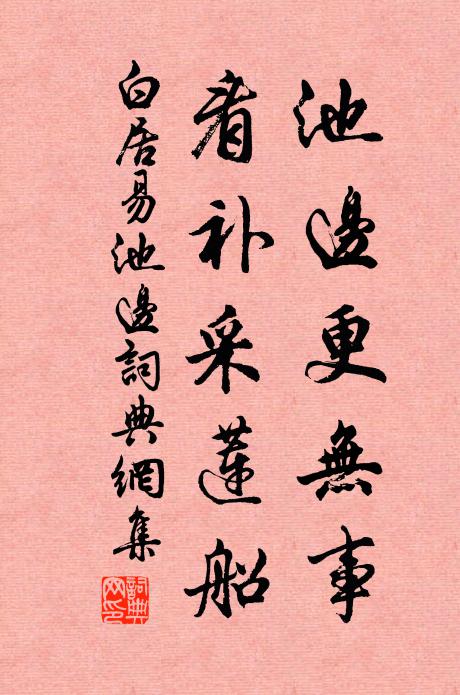 池邊更無事
看补采蓮船
白居易池邊詞典網集
詞典网印